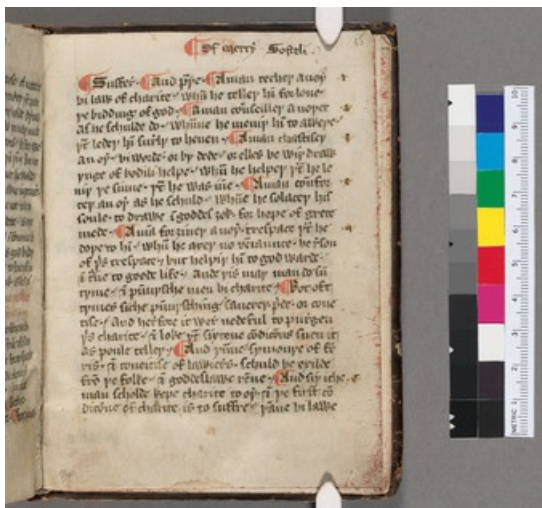 Of mercy Gostli.
Suffre. And preye. A man techeþ anoþ
bi lawe of charite. whan he telleþ hi for loue
þe bidding of god. A man conseileþ anoþer
as he schulde do. whanne he meuiþ hi to a
þt ledeþ hi surly to heuen. A man chastiseþ
an oþ. bi worde. or by dede. or elles be wiþ draw
ynge of bodili helpe. whan he helpeþ þt he le
þe sinne. þt he was ine. A man confor
teþ an oþ as he schuld. whan he solaceþ his
soule. to drawe i goddes ȝok. for hope of grete
mede. A man forȝiueþ anoþ. trespace þt he
dope to hi. whan he axeþ no veniance. he
of þis trespace. but helpiþ hi to god warde.
i to goode life. And þis may man do su
tyme. i punysche men bi charite. Bot oft
tymes siche punysching sauereþ pride. or coue
tise. And herfore it wer nedeful to
þis charite. i loue þt
as poule telleþ. And þanne symonye of
i couetise of lawiers. schuld be exilde
fro þe folke. i goddes lawe And siþ iche
man scholde kepe charite to oþ i þe first co
dicione of charite. is to suffre. þanne bi lawe